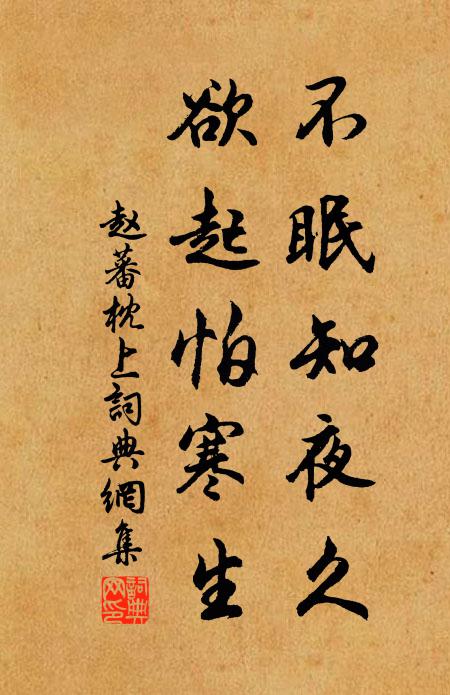 不眠知夜久
欲起怕寒生
赵蕃枕上詞典網集
詞典
网印